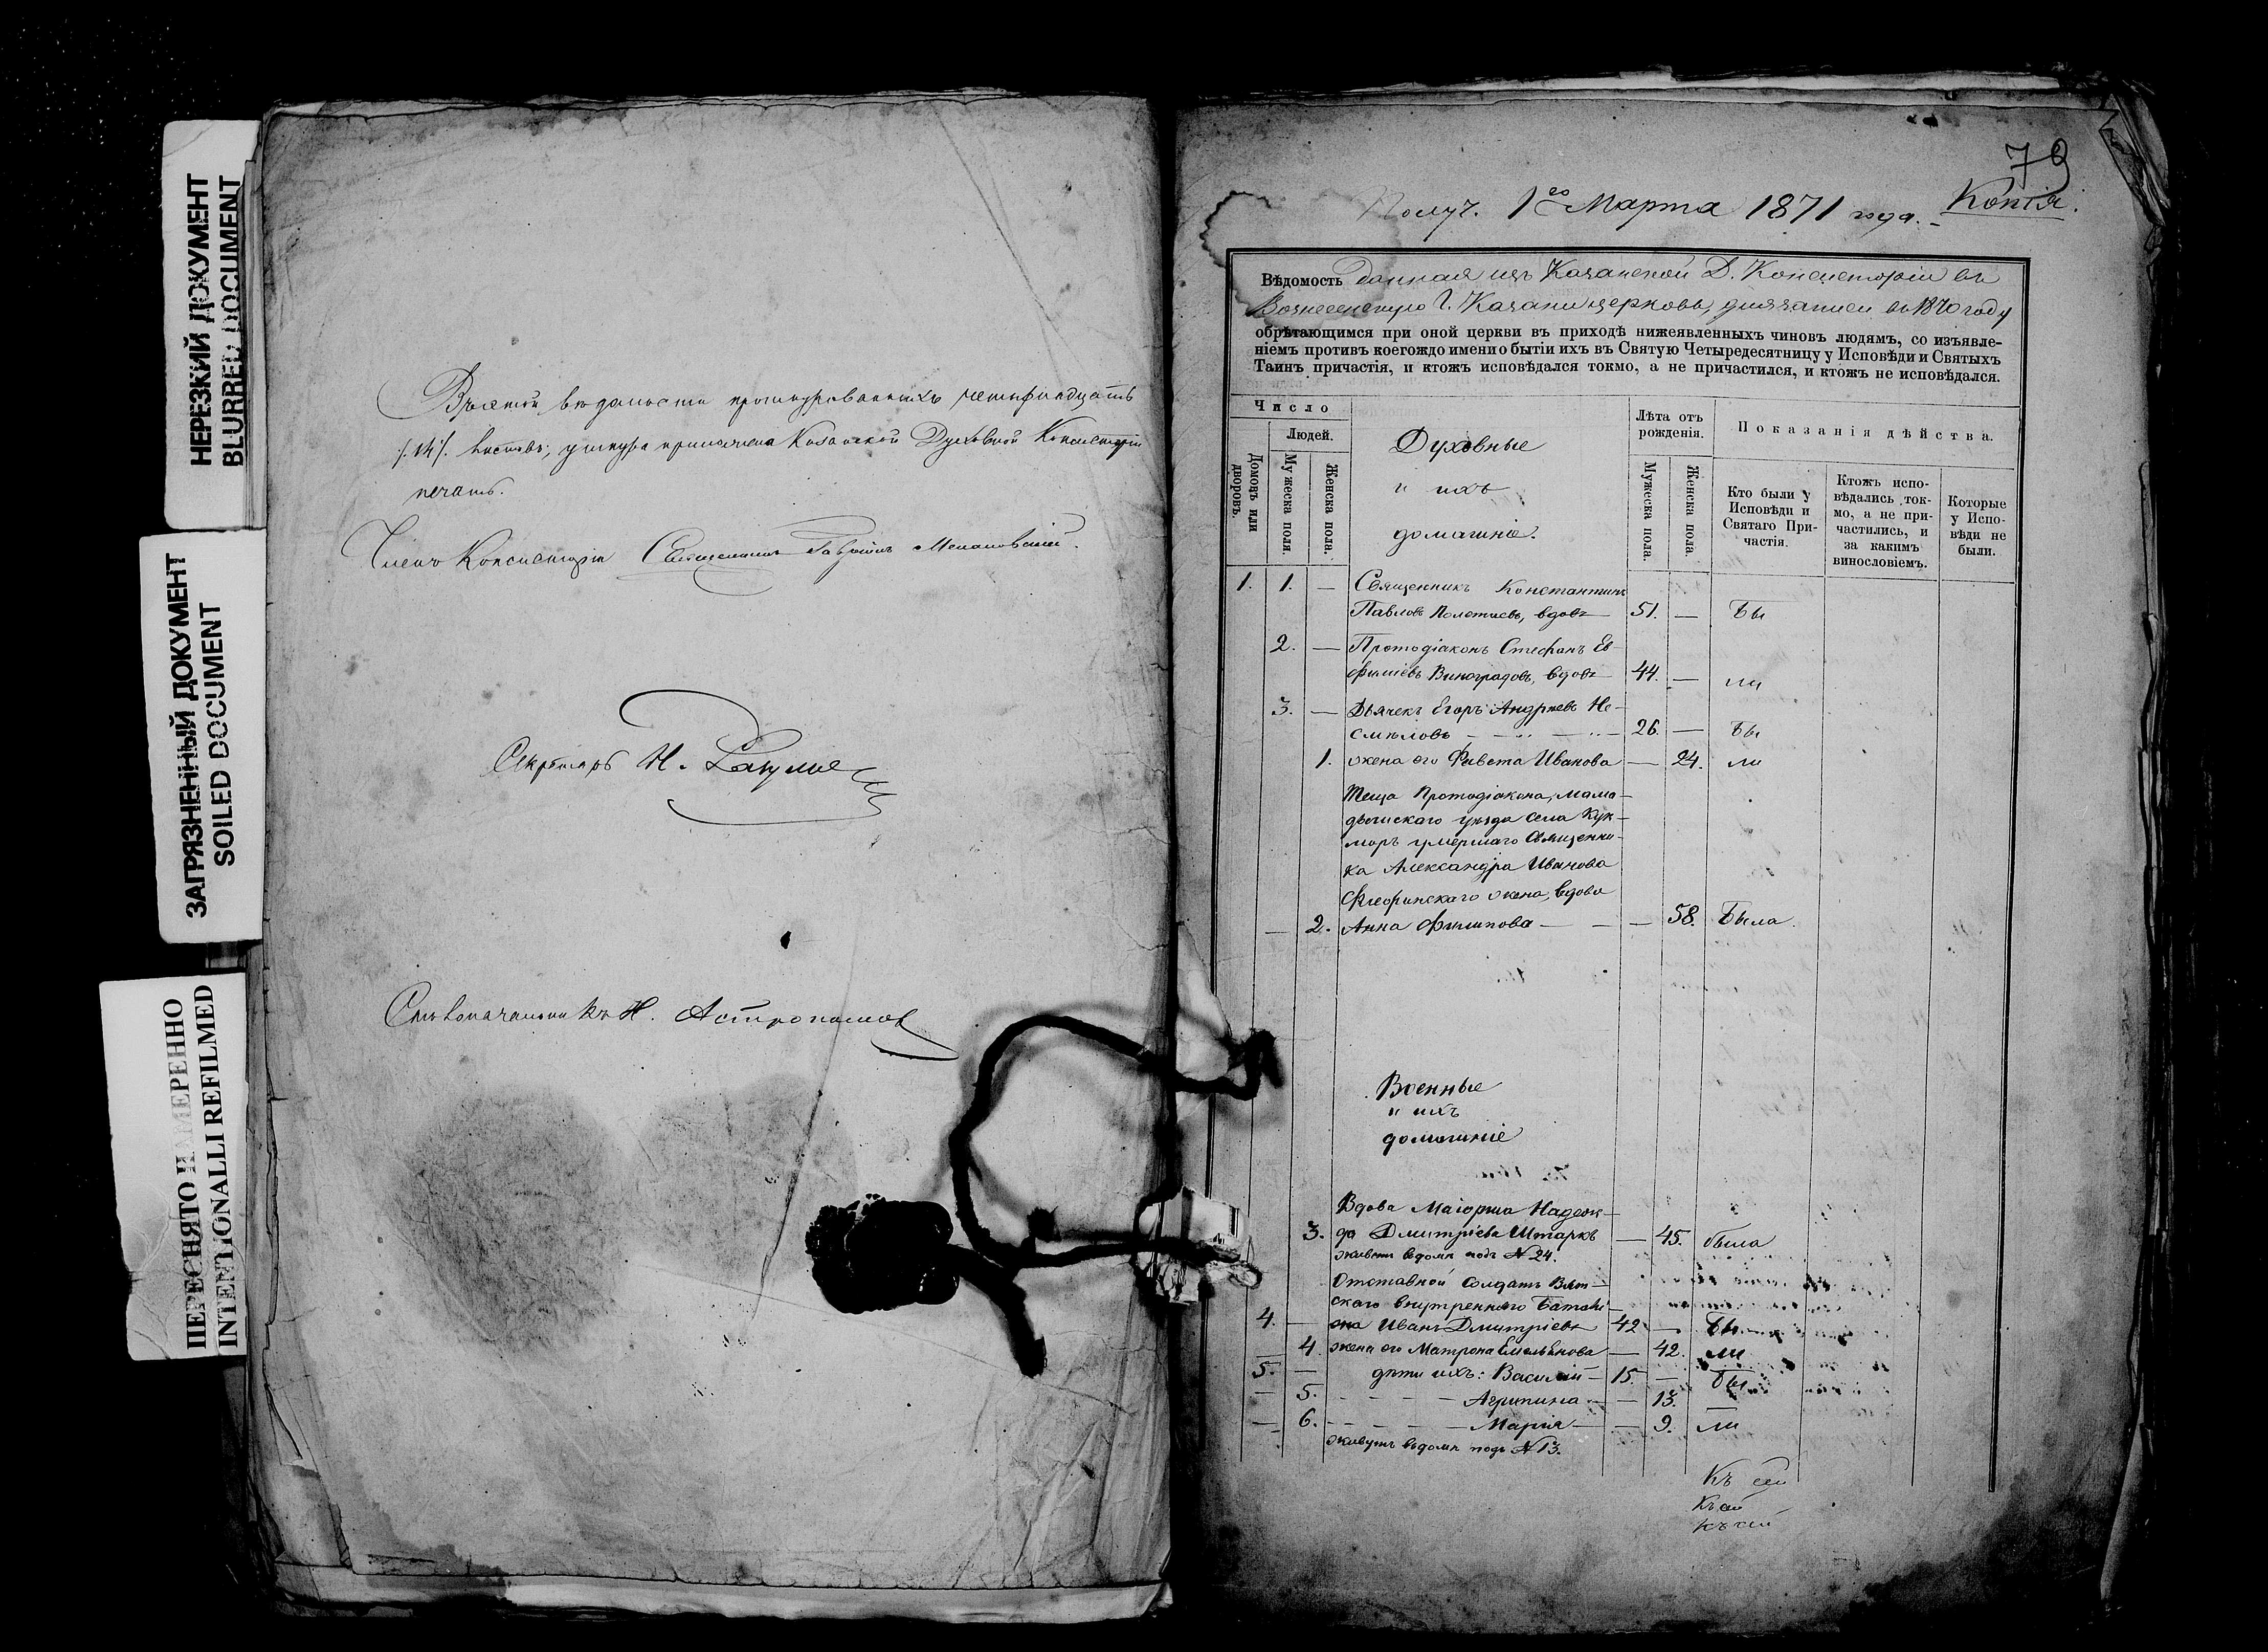 НЕРЕЗКИЙ ДОКУМЕНТ
BLURRED DOCUMENT
ЗАГРЯЗНЕННЫЙ ДОКУМЕНТ
SOILED DOCUMENT
ПЕРЕСНЯТО НАМЕРЕННО
INTENTIONALLI REFILMED
Въ сей вѣдомости прошнурованныхъ четырнадцать
/.14/. листовъ; у шнура приложена Казанской Духовной Консисторіи
печать.
Членъ Консисторіи Священникъ
Секретарь Н.
Столоначальникъ Н. Астрономов
79
Получ. 1го Марта 1871 года. Копія.
Вѣдомость данная изъ Казанской Д. Консисторіи въ
Вознесенскую г. Казани церковь, для записи въ 1870 году
обрѣтающимся при оной церкви въ приходѣ нижеявленныхъ чиновъ людямъ, со изъявле-
ніемъ противъ коегождо имени о бытіи ихъ въ Святую Четыредесятницу у Исповѣди и Святыхъ
Таинъ причастія, и ктожъ исповѣдался токмо, а не причастился, и ктожъ не исповѣдался.
Число
Людей.
Домовъ или дворовъ.
Мужеска пола.
Женска пола.
Духовные
и ихъ
домашніе.
Лѣта отъ рожденія.
Мужеска пола.
Женска пола.
Показанія дѣйства.
Кто были у Исповѣди и Святаго При-частія.
Ктожъ испо-вѣдались ток-мо, а не при-частились, и за какимъ винословіемъ.
Которые у Испо-вѣди не были.
1. 1. — Священникъ Константинъ
Павловъ Полетаевъ, вдовъ 51. — Бы
2. — Протодіаконъ Стефанъ Ев
фиміевъ Виноградовъ, вдовъ 44. — ли
3. — Дьячекъ Егоръ Андреевъ Не-
смѣловъ 26. — Бы
1. жена его Ѳивета Иванова — 24. ли
Теща Протодіакона, Мама-
дышскаго уѣзда села Кук-
моръ умершаго Священни-
ка Александра Иванова
жена, вдова
— 2. Анна Филипова — — 58. Была.
Военные
и ихъ
домашніе
Вдова Маіорша Надеж-
3. да Дмитріева Штаркъ — 45. была
живетъ въ домѣ подъ № 24.
Отставной солдатъ Вят-
скаго внутренняго Баталі-
4. — она Иванъ Дмитріевъ 42 — Бы
4. жена его Матрона Емельянова — 42. ли
5. — дѣти ихъ: Василій — 15. — Бы
— 5. Агрипина — — 13.
— 6. Марія — — 9. ли
живутъ въ домѣ подъ № 13.
Къ сей
Къ сей
къ сей